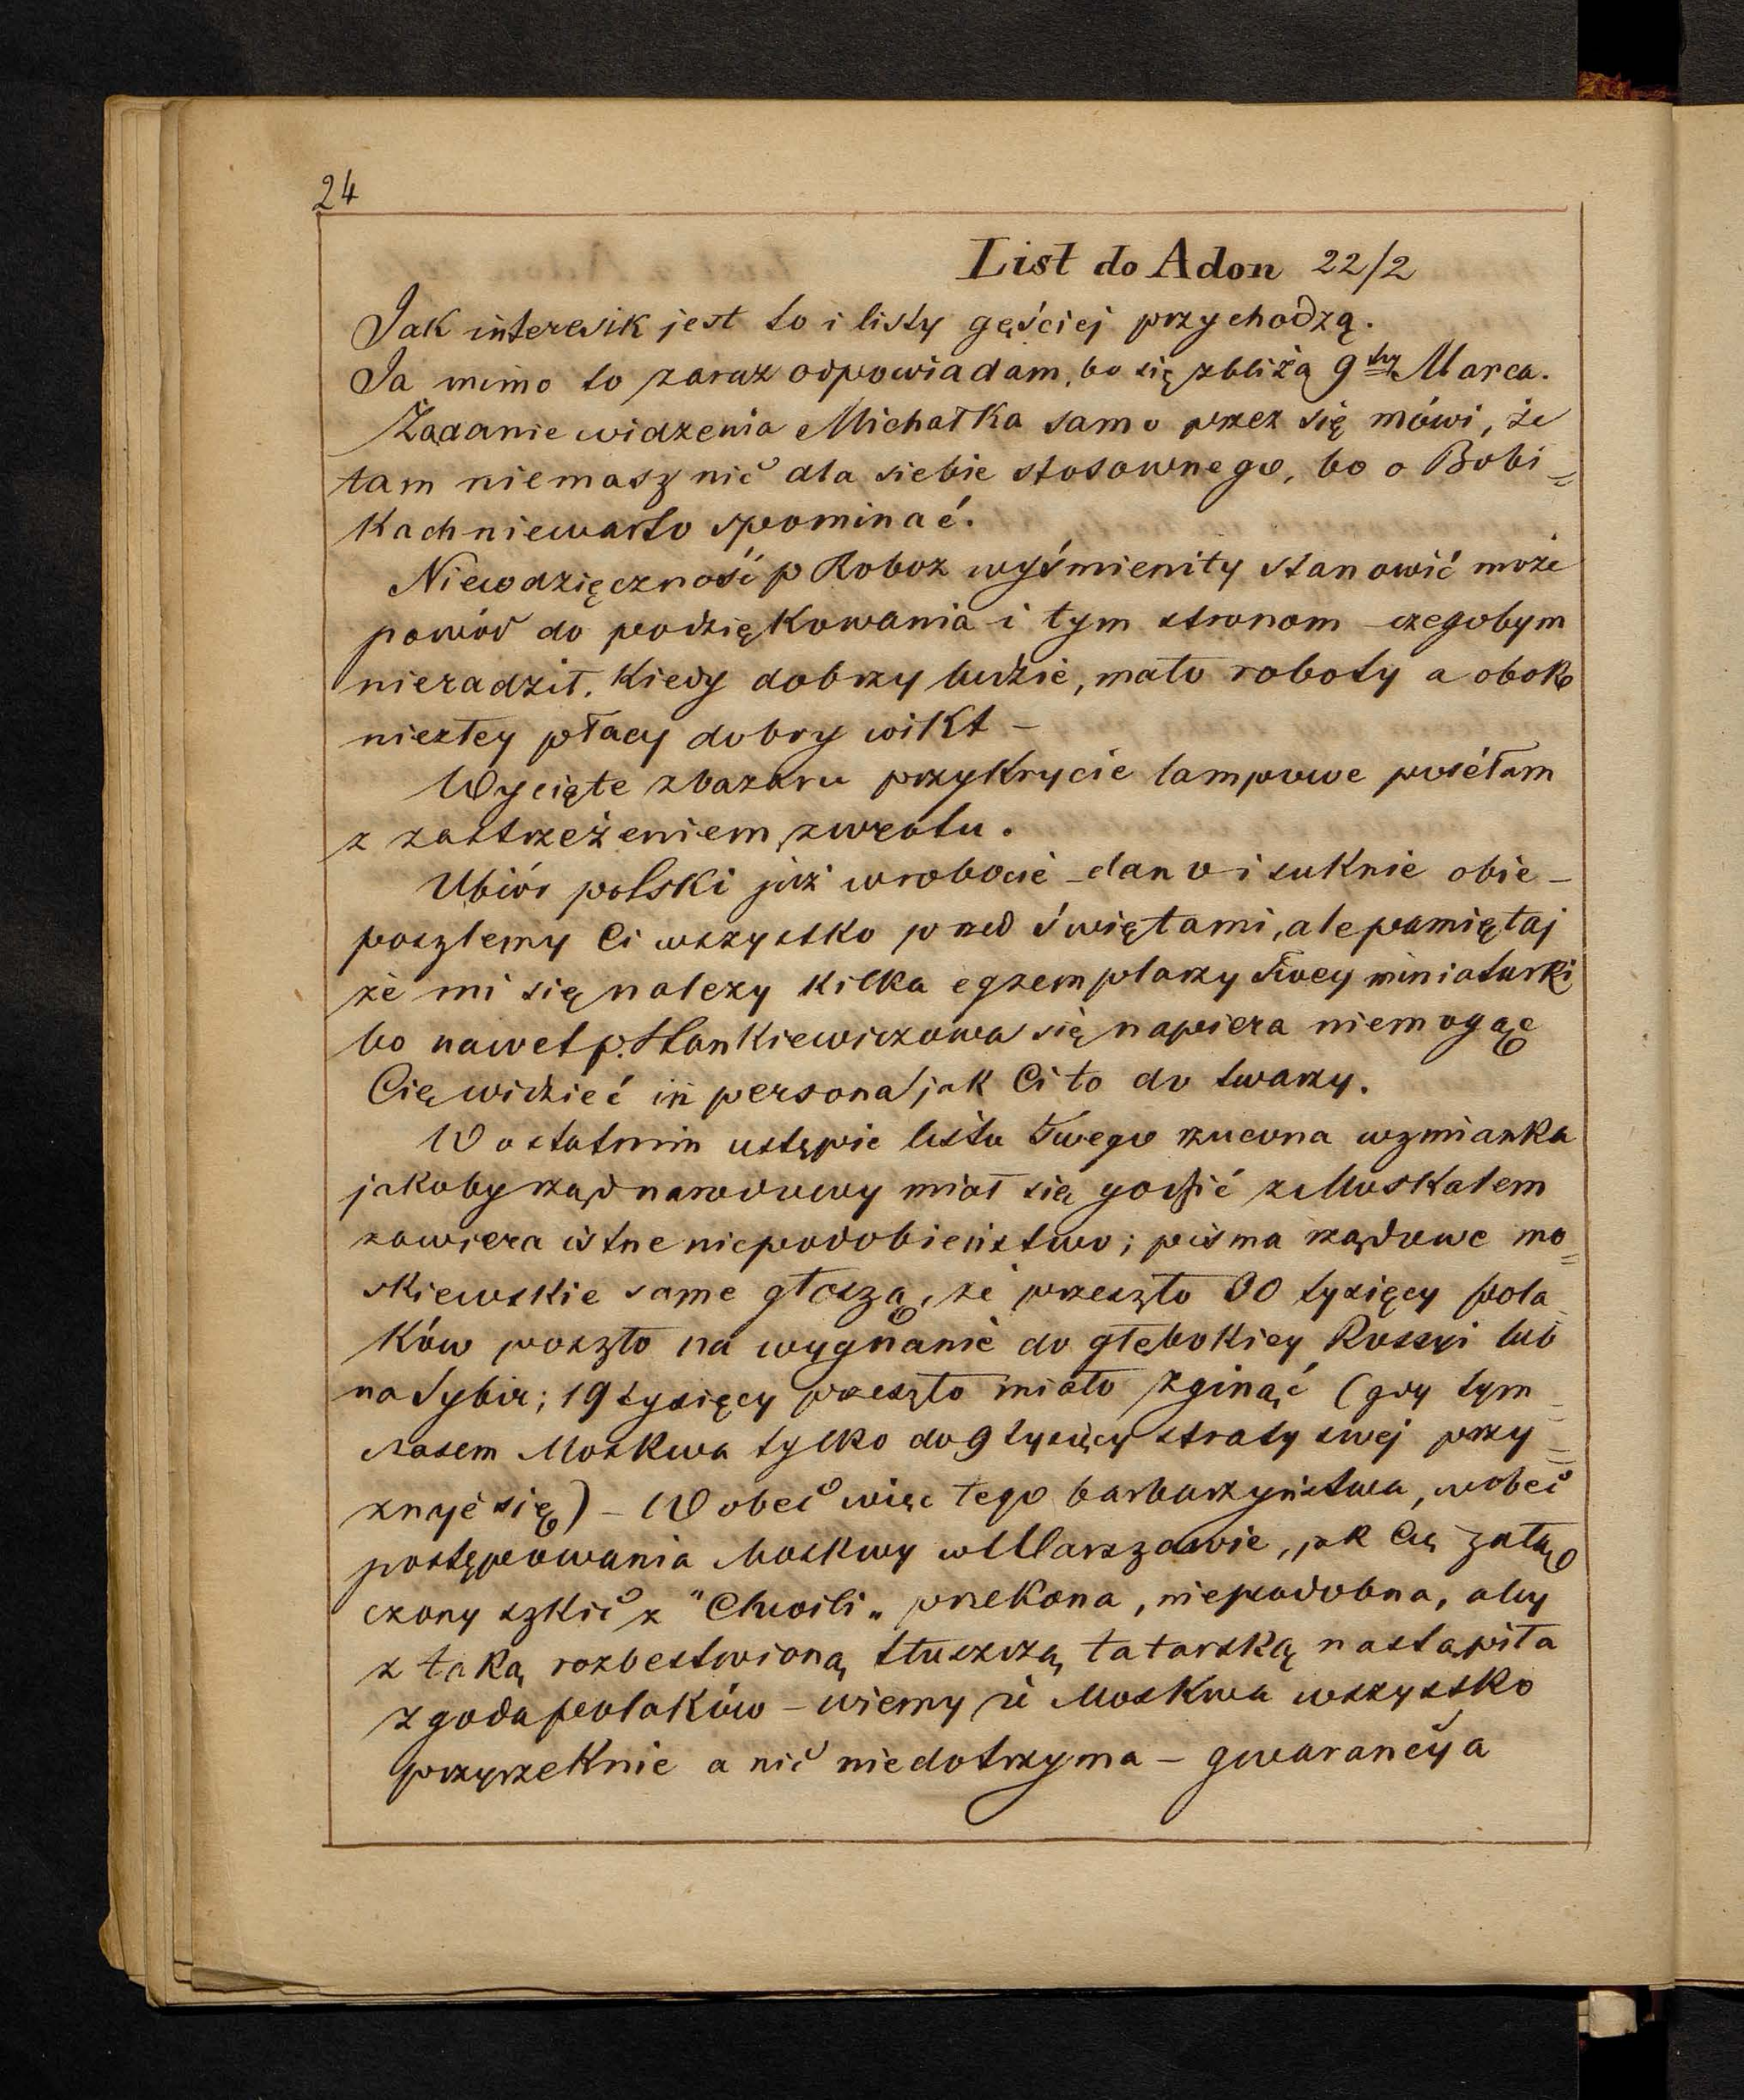 24
List do Adon 22/2
Jak interesik jest to i listy gęściej przychodzą.
Ja mimo to zaraz odpowiadam, bo się zbliża 9ty Marca.
Żądanie widzenia Michałka samo przez się mówi, że
tam niemasz nic dla siebie stosownego, bo o Bobi=
kach niewarto spominać.
Niewdzięczność p Roboz wyśmienity stanowić może
powód do podziękowania i tym stronom – czegobym
nieradził. Kiedy dobrzy ludzie, mało roboty a obok
niezłey płacy dobry wikt –
Wycięte zbazaru przykrycie lampowe posełam
z zastrzeżeniem zwrotu.
Ubiór polski już wrobocie – dano i suknie obie –
poszlemy Ci wszystko przed świętami, ale pamiętaj
że mi się należy kilka egzemplarzy Twey miniaturki
bo nawet p. Stankiewiczowa się napiera niemogąc
Cię widzieć in persona jak Ci to do twarzy.
W ostatnim ustępie listu Twego rzucona wzmianka
jakoby rząd narodowy miał się godzić z Moskalem
zawiera istne niepodobieństwo; pisma rządowe mo=
skiewskie same głoszą, że przeszło 30 tysięcy pola
ków poszło na wygnanie do głębokiey Rossyi lub
na Sybir; 19 tysięcy przeszło miało zginąć (gdy tym=
czasem Moskwa tylko do 9 tysięcy straty swej przy=
znaje się) – Wobec więc tego barbarzyństwa, wobec
postępowania Moskwy w Warszawie, jak Cię załą
czony szkic z "Chwili„ przekona, niepodobna, aby
z taką rozbestwioną tłuszczą tatarską nastąpiła
zgoda polaków – wiemy że Moskwa wszystko
przyrzeknie a nic niedotrzyma – gwarancya